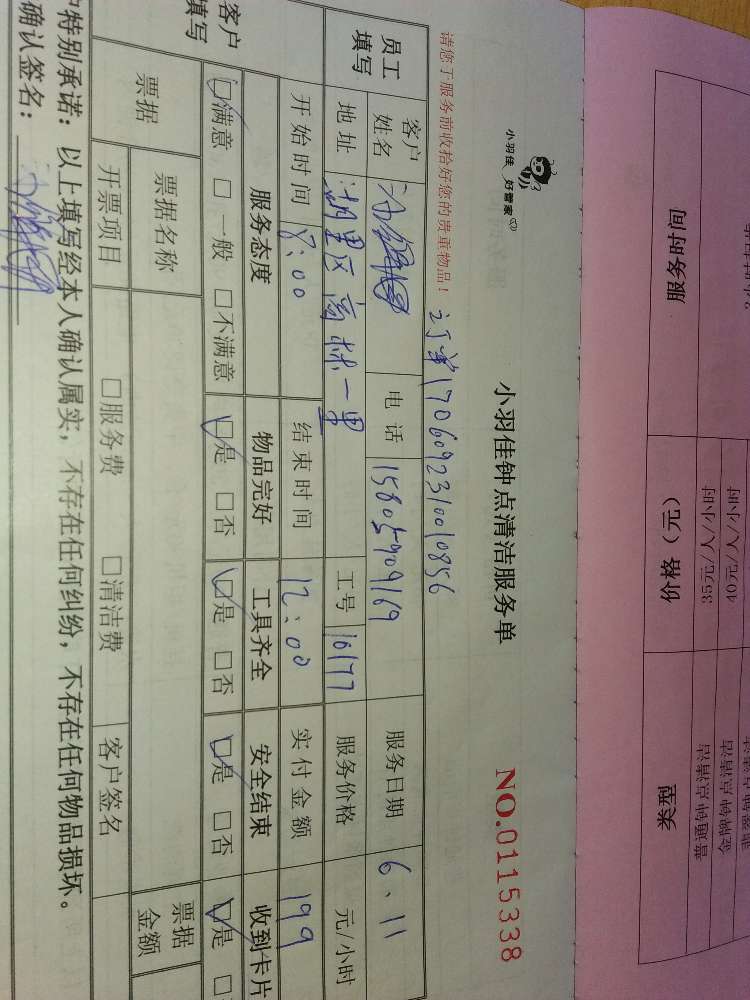 小羽佳 好管家
小羽佳钟点清洁服务单
NO.0115338
请您于服务前收拾好您的贵重物品!
订单1706092310010856
员工填写
客户姓名
电话 15805909169
服务日期 6.11
地址 湖里区高林一里
工号 16177
服务价格 元/小时
开始时间 8:00
结束时间 12:00
实付金额 199
客户填写
服务态度 物品完好 工具齐全 安全结束 收到卡片
□满意 □一般 □不满意 □是 □否 □是 □否 □是 □否 □是
票据
票据名称
票据金额
开票项目 □服务费 □清洁费 客户签名
特别承诺:以上填写经本人确认属实,不存在任何纠纷,不存在任何物品损坏。
确认签名:
服务时间 价格(元) 类型
35元/人/小时 普通钟点清洁
40元/人/小时 金牌钟点清洁